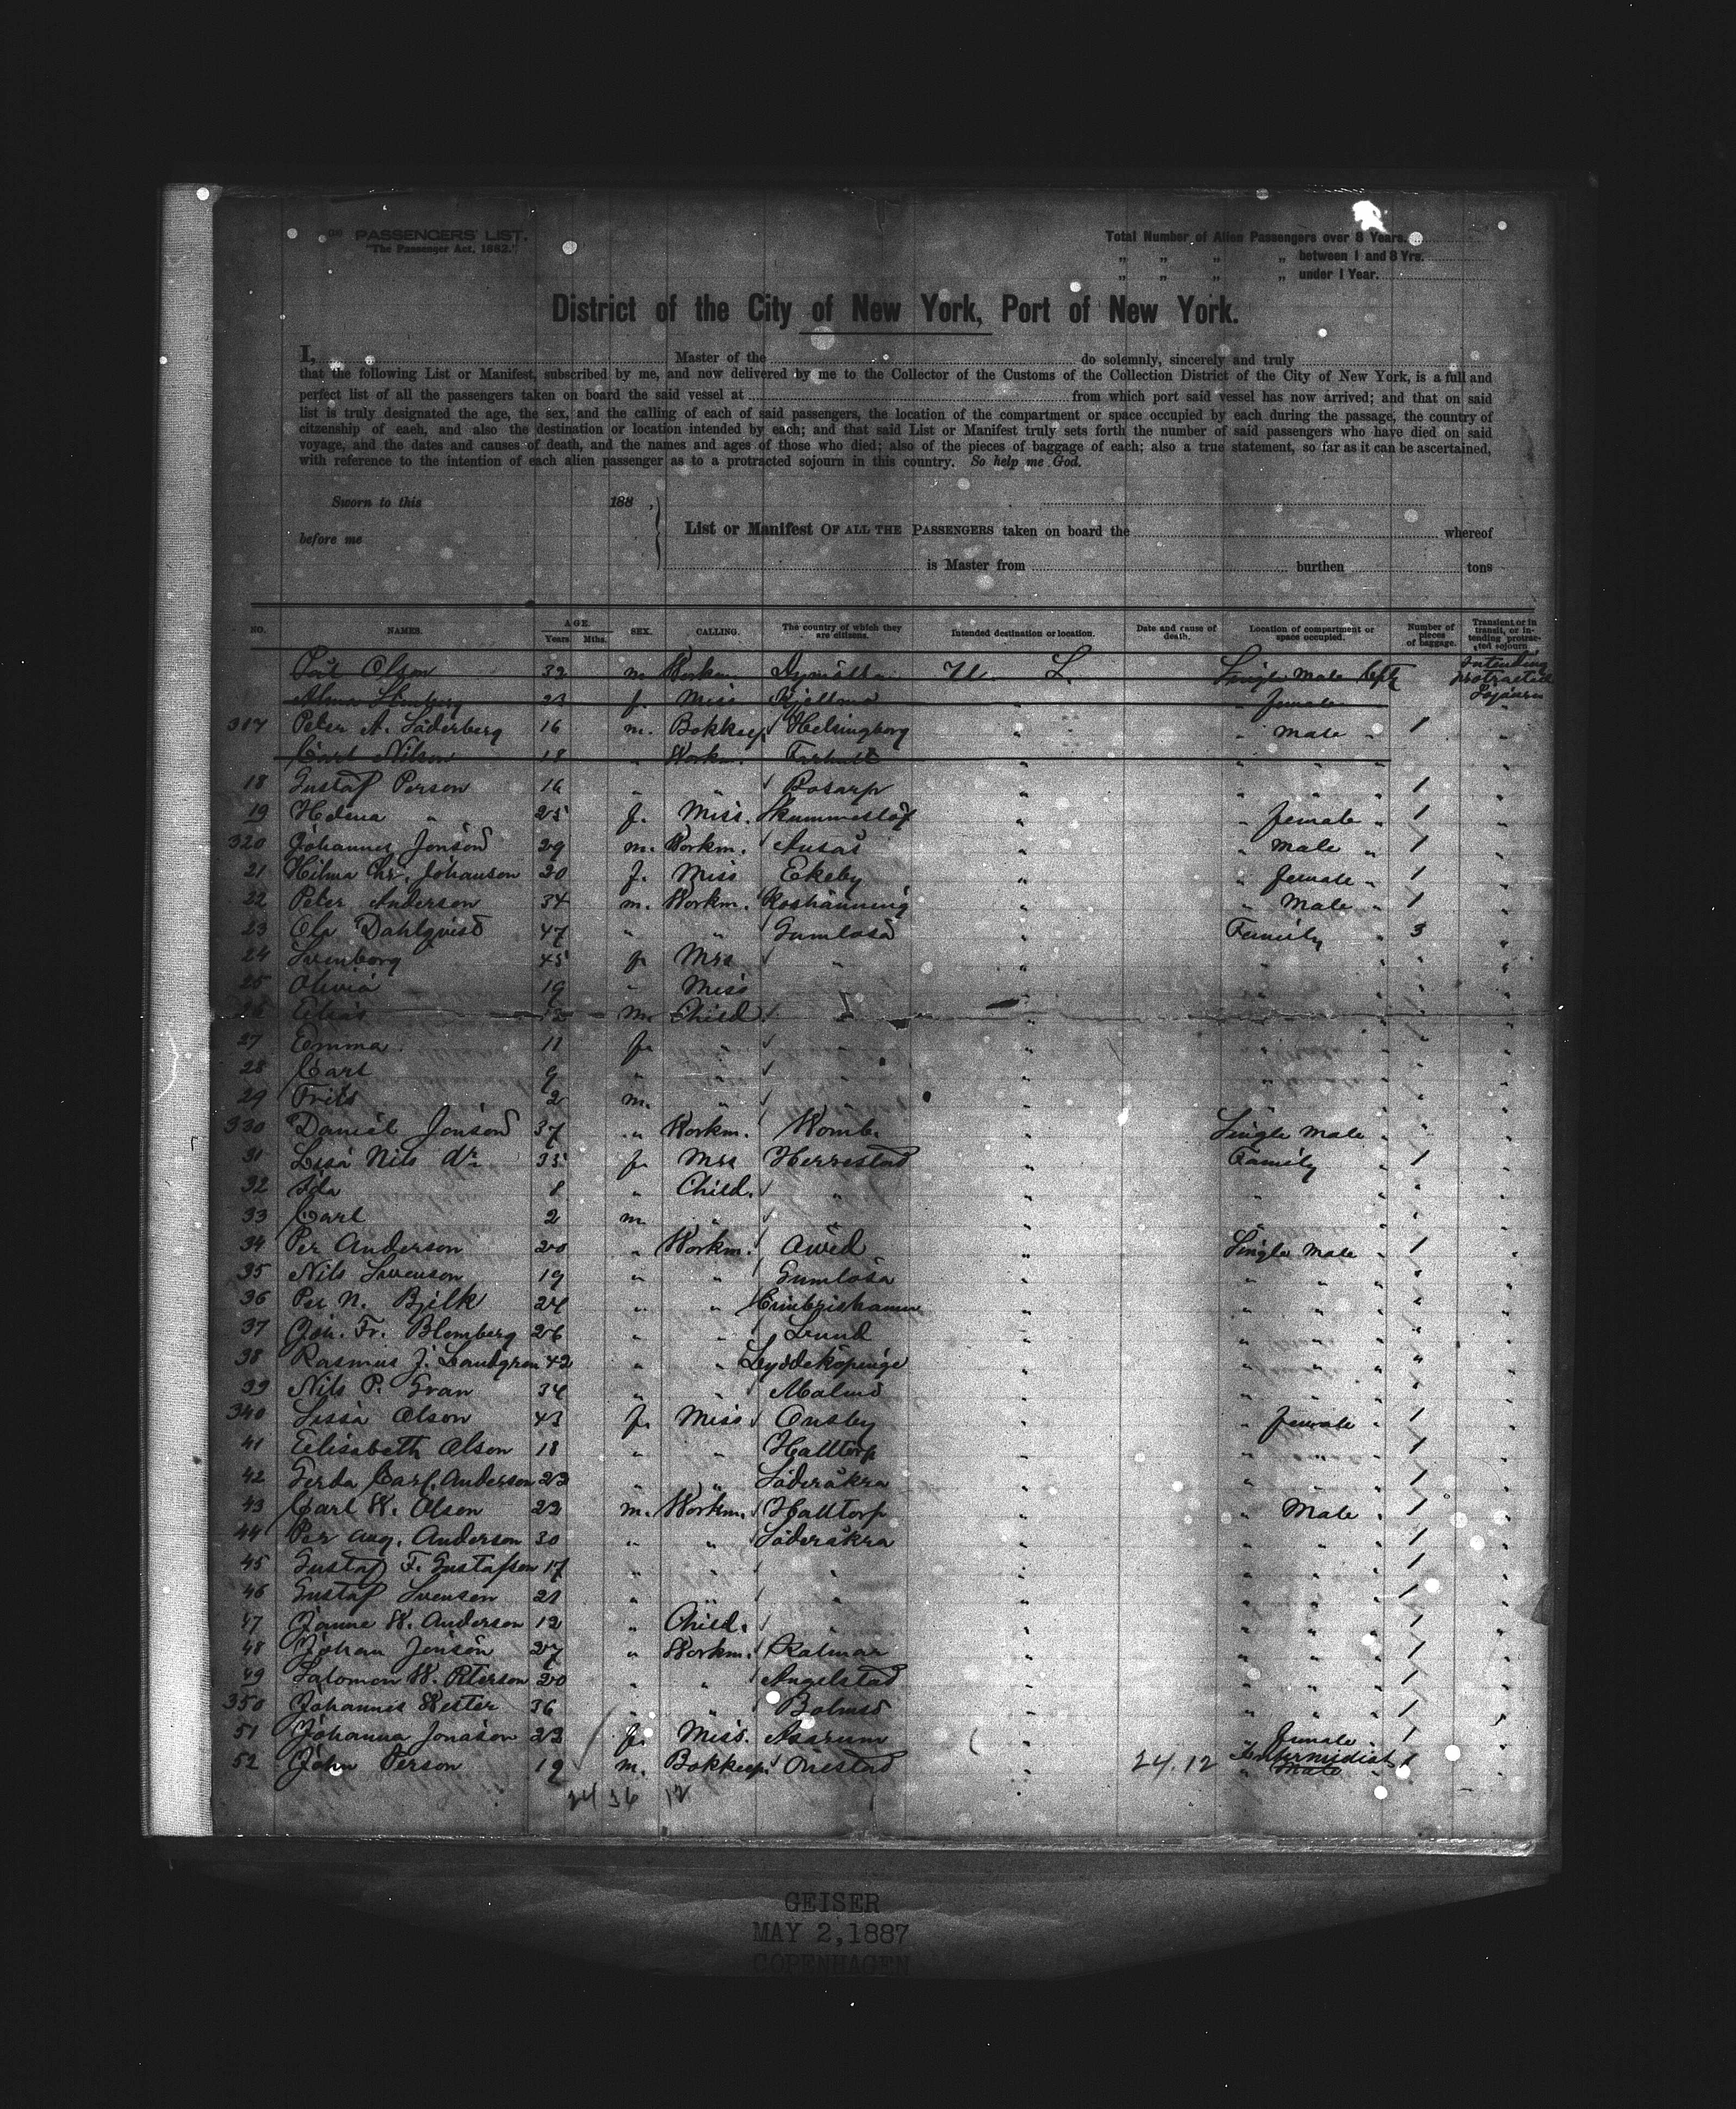 PASSENGERS' LIST.
"The Passenger Act, 1882."
Total Number of Alien Passengers over 8 Years.
" " " " between 1 and 8 Yrs.
" " " " under 1 Year.
District of the City of New York, Port of New York.
I, Master of the do solemnly, sincerely and truly
that the following List or Manifest, subscribed by me, and now delivered by me to the Collector of the Customs of the Collection District of the City of New York, is a full and
perfect list of all the passengers taken on board the said vessel at from which port said vessel has now arrived; and that on said
list is truly designated the age, the sex, and the calling of each of said passengers, the location of the compartment or space occupied by each during the passage, the country of
citzenship of each, and also the destination or location intended by each; and that said List or Manifest truly sets forth the number of said passengers who have died on said
voyage, and the dates and causes of death, and the names and ages of those who died; also of the pieces of baggage of each; also a true statement, so far as it can be ascertained,
with reference to the intention of each alien passenger as to a protracted sojourn in this country. So help me God.
Sworn to this 188 ,
before me
List or Manifest OF ALL THE PASSENGERS taken on board the whereof
is Master from burthen tons
NO. NAMES. AGE. Years. Mths. SEX. CALLING. The country of which they are citizens. Intended destination or location. Date and cause of death. Location of compartment or space occupied. Number of pieces of baggage. Transient or in transit, or intending protracted sojourn
Olson 32 m Workm. U. S. Single Male Intending protracted Sojourn
Alma 23 f. Miss female
317 Peter A. Söderberg 16 m. Bokkeep. Helsingborg " male " 1 "
Carl Nilson 18 " Workm. Farhult " " "
18 Gustaf Person 16 " " Bosarp " " " 1 "
19 Helena " 25 f. Miss. Skummeslöf " female " 1 "
320 Johannes Jonson 29 m. Workm. Ausås " male " 1 "
21 Hilma Chr. Johanson 20 f. Miss Ekeby " female " 1 "
22 Peter Anderson 34 m. Workm. " Male " 1 "
23 Ola Dahlqvist 47 " " Gumlösa " Family " 3 "
24 45 f. Mrs " " "
25 Olivia 19 " Miss " "
26 Elias m. Child "
27 Emma 11 f. " " "
28 Carl 9 " " " "
29 Frits 2 m. " " "
330 Daniel Jonson 37 " Workm. Womb. " Single Male " " "
31 Lisa Nils dr. 35 f. Mrs Herrestad " Family " 1 "
32 Ida 8 " Child. " " " "
33 Carl 2 m. " " " "
34 Per Anderson 20 " Workm. " Single Male " 1 "
35 Nils Swenson 19 " " Gumlösa " " " " "
36 Per N. Bjelk 24 " " Cimbrishamn " " " " "
37 Joh. Fr. Blomberg 26 " " Lund " " " " "
38 Rasmus J. Landgren 42 " " Lyddeköpinge " " " " "
39 Nils P. Gran 34 " " Malmö " " " " "
340 Lissa Olson 43 f. Miss Ousby " female " 1 "
41 Elisabeth Olson 18 " " Halltorp " " " 1 "
42 Gerda Carl. Anderson 23 " " Söderåkra " " " 1 "
43 Carl W. Olson 22 m. Workm. Halltorp " Male " 1 "
44 Per Aug. Anderson 30 " " Söderåkra " " " 1 "
45 Gustaf F. Gustafson 17 " " " " " " 1 "
46 Gustaf Svenson 21 " " " " " " 1 "
47 Janne W. Anderson 12 " Child. " " " 1 "
48 Johan Jonson 27 " Workm. Kalmar " " " 1 "
49 Salomon W. Peterson 20 " " Angelstad " " " 1 "
350 Johannes Wester 36 " " Bolmsö " " " 1 "
51 Johanna Jonason 23 f. Miss. Asarum " female " 1 "
52 John Person 19 m. Bokkeep. Önestad 24.12 Intermediat Male 1 "
24 36 12
GEISER
MAY 2,1887
COPENHAGEN